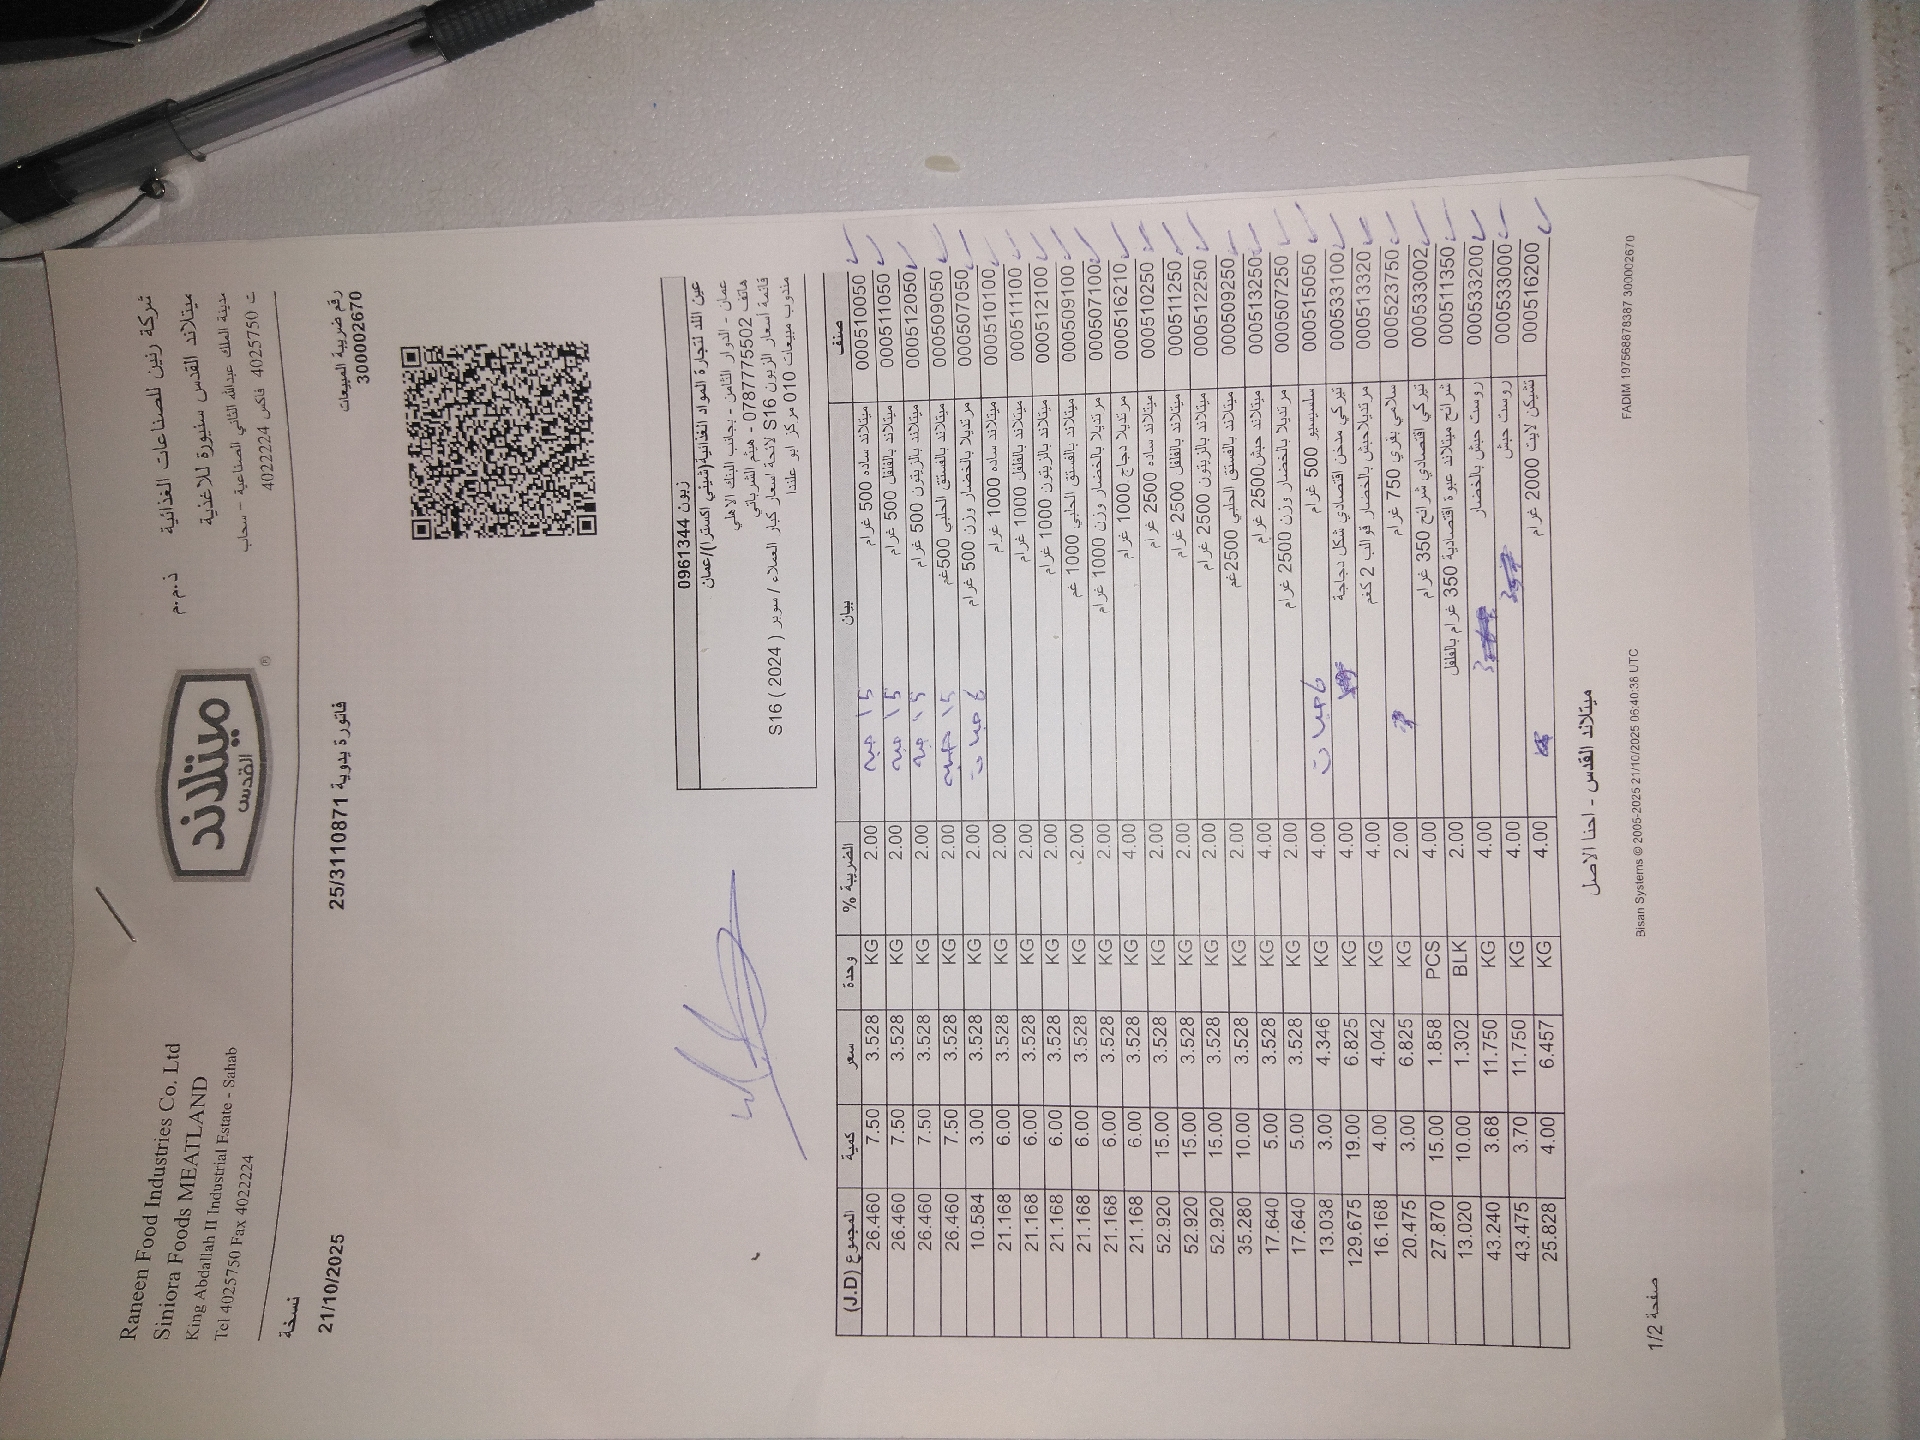 Raneen Food Industries Co. Ltd
Siniora Foods MEATLAND
King Abdallah II Industrial Estate - Sahab
Tel 4025750 Fax 4022224
ميتلاند
القدس
®
شركة رنين للصناعات الغذائية ذ.م.م
ميتلاند القدس سنيورة للاغذية
مدينة الملك عبدالله الثاني الصناعية - سحاب
ت 4025750 فاكس 4022224
نسخة
21/10/2025
فاتورة يدوية 25/3110871
رقم ضريبة المبيعات
300002670
زبون 0961344
عين اللد لتجارة المواد الغذائية(شيني اكسترا)/عمان
عمان - الدوار الثامن - بجانب البنك الاهلي
هاتف 0787775502 - هيثم الشرباتي
قائمة أسعار الزبون S16 لائحة أسعار كبار العملاء / سوبر ( 2024 ) S16
مندوب مبيعات 010 مركز ابو علندا
صنف بيان الضريبة % وحدة سعر كمية المجموع (J.D)
000510050 ميتلاند ساده 500 غرام 15 حبه 2.00 KG 3.528 7.50 26.460
000511050 ميتلاند بالفلفل 500 غرام 15 حبه 2.00 KG 3.528 7.50 26.460
000512050 ميتلاند بالزيتون 500 غرام 15 حبه 2.00 KG 3.528 7.50 26.460
000509050 ميتلاند بالفستق الحلبي 500غم 15 حبه 2.00 KG 3.528 7.50 26.460
000507050 مرتديلا بالخضار وزن 500 غرام 6 حبات 2.00 KG 3.528 3.00 10.584
000510100 ميتلاند ساده 1000 غرام 2.00 KG 3.528 6.00 21.168
000511100 ميتلاند بالفلفل 1000 غرام 2.00 KG 3.528 6.00 21.168
000512100 ميتلاند بالزيتون 1000 غرام 2.00 KG 3.528 6.00 21.168
000509100 ميتلاند بالفستق الحلبي 1000 غم 2.00 KG 3.528 6.00 21.168
000507100 مرتديلا بالخضار وزن 1000 غرام 2.00 KG 3.528 6.00 21.168
000516210 مرتديلا دجاج 1000 غرام 4.00 KG 3.528 6.00 21.168
000510250 ميتلاند ساده 2500 غرام 2.00 KG 3.528 15.00 52.920
000511250 ميتلاند بالفلفل 2500 غرام 2.00 KG 3.528 15.00 52.920
000512250 ميتلاند بالزيتون 2500 غرام 2.00 KG 3.528 15.00 52.920
000509250 ميتلاند بالفستق الحلبي 2500غم 2.00 KG 3.528 10.00 35.280
000513250 ميتلاند حبش2500 غرام 4.00 KG 3.528 5.00 17.640
000507250 مرتديلا بالخضار وزن 2500 غرام 2.00 KG 3.528 5.00 17.640
000515050 سلسيسيو 500 غرام 6 حبات 4.00 KG 4.346 3.00 13.038
000533100 تيركي مدخن اقتصادي شكل دجاجة 4.00 KG 6.825 19.00 129.675
000513320 مرتديلاحبش بالخضار قوالب 2 كغم 4.00 KG 4.042 4.00 16.168
000523750 سلامي بقري 750 غرام 2.00 KG 6.825 3.00 20.475
000533002 تيركي اقتصادي شرائح 350 غرام 4.00 PCS 1.858 15.00 27.870
000511350 شرائح ميتلاند عبوة اقتصادية 350 غرام بالفلفل 2.00 BLK 1.302 10.00 13.020
000533200 روست حبش بالخضار 4.00 KG 11.750 3.68 43.240
000533000 روست حبش 4.00 KG 11.750 3.70 43.475
000516200 تشيكن لايت 2000 غرام 4.00 KG 6.457 4.00 25.828
ميتلاند القدس - احنا الاصل
صفحة 1/2
Bisan Systems © 2005-2025 21/10/2025 06:40:38 UTC
FADIM 1975688788387 300002670